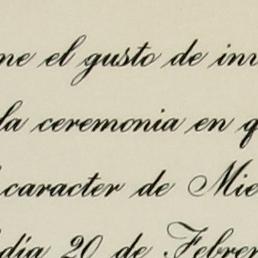 ne el gusto de inv
la ceremonia en q
caracter de Mie
día 20 de Febrer